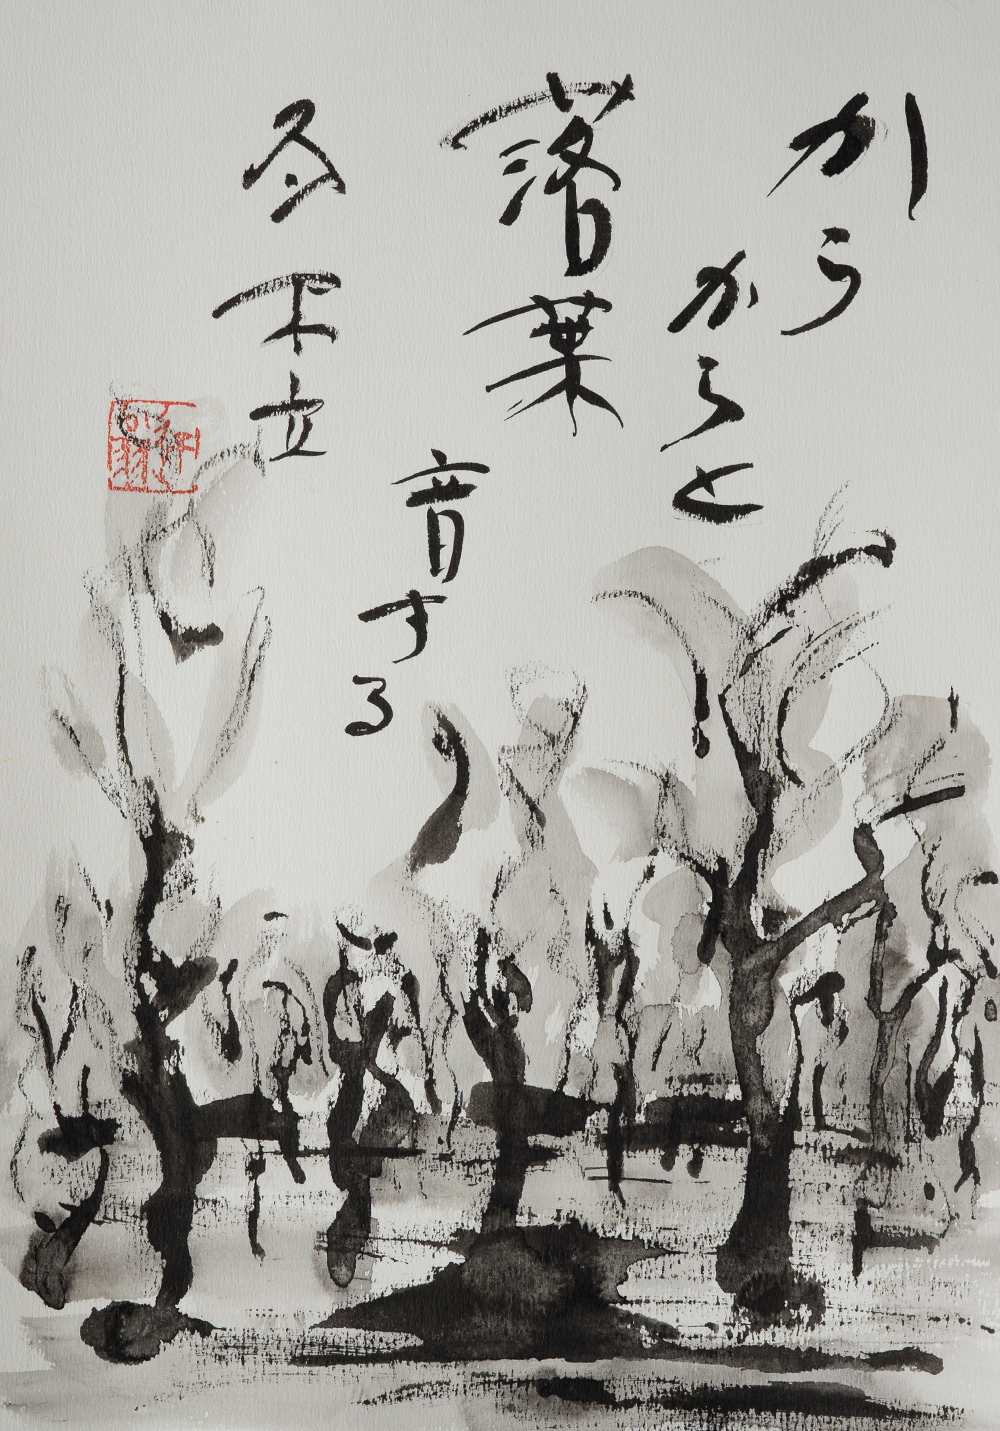 から
からと
落葉
音する
冬木立